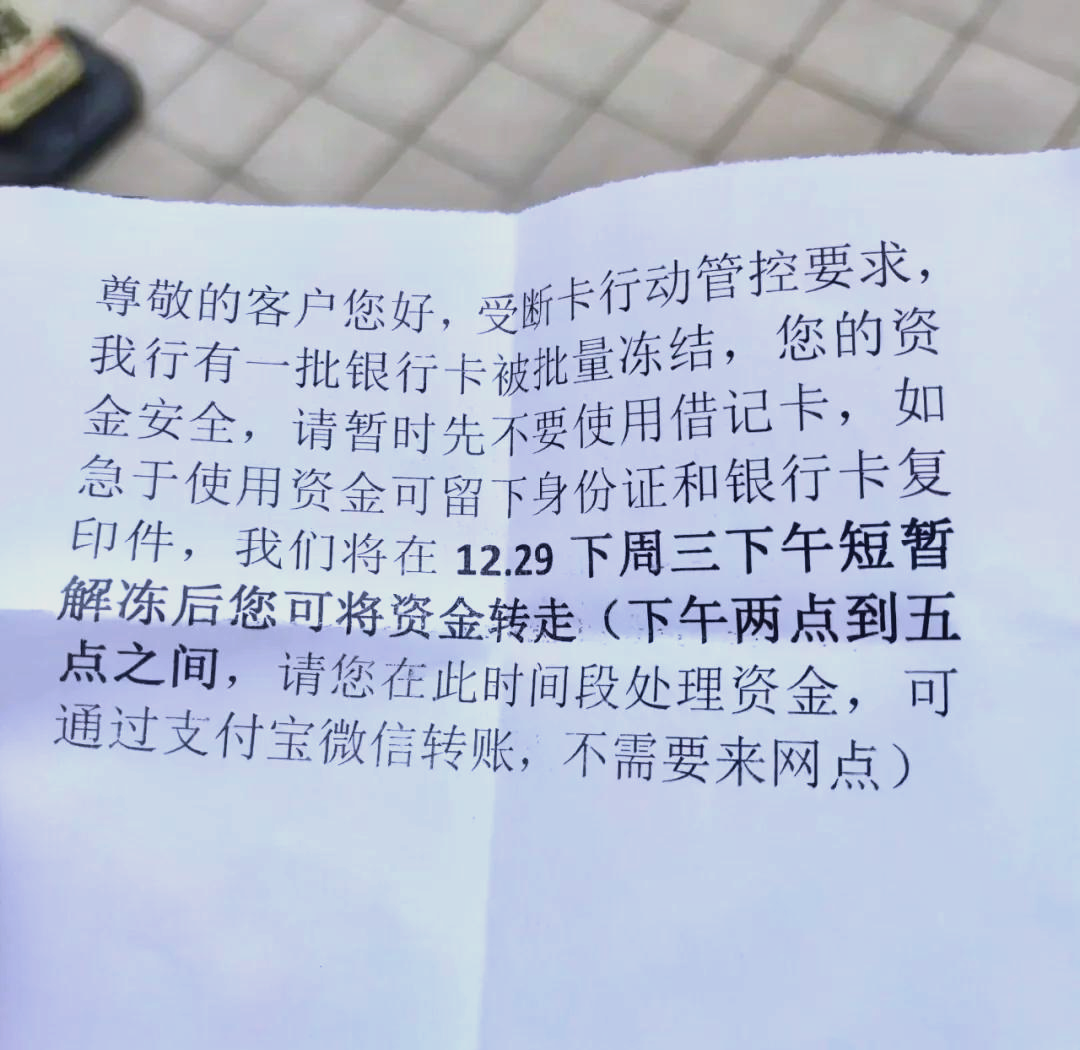 尊敬的客户您好，受断卡行动管控要求，
我行有一批银行卡被批量冻结，您的资
金安全，请暂时先不要使用借记卡，如
急于使用资金可留下身份证和银行卡复
印件，我们将在 12.29 下周三下午短暂
解冻后您可将资金转走（下午两点到五
点之间，请您在此时间段处理资金，可
通过支付宝微信转账，不需要来网点）